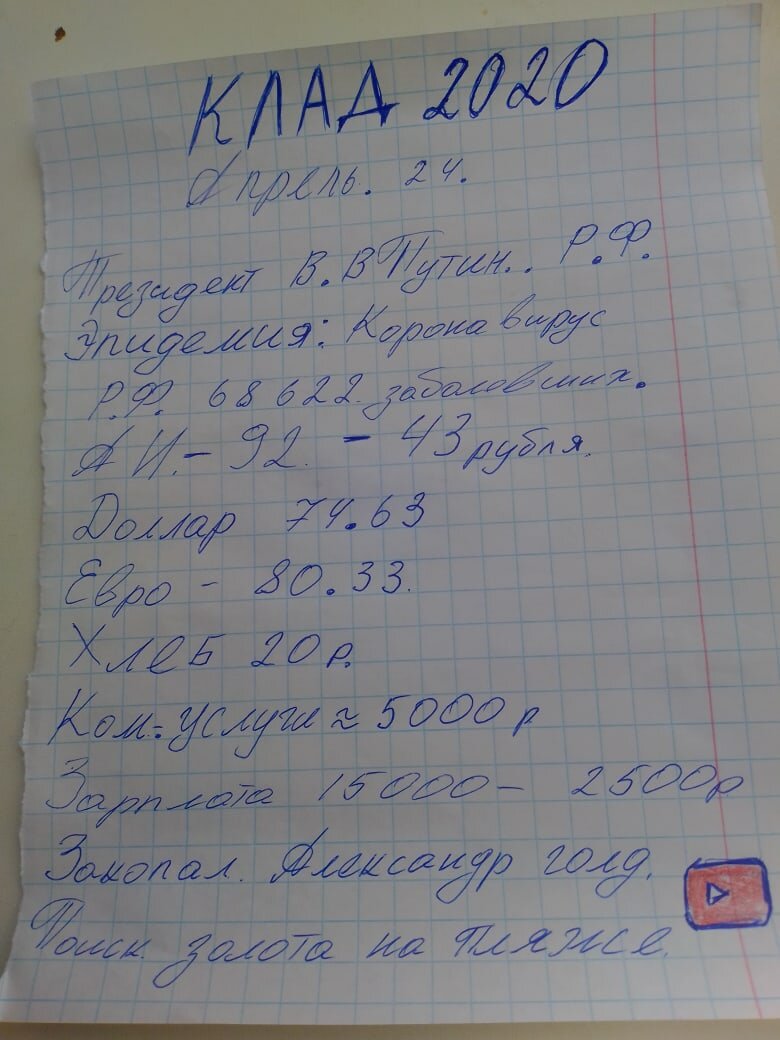 КЛАД 2020
Апрель. 24.
Президент В. В Путин.. Р.Ф.
Эпидемия: Корона вирус
Р.Ф. 68622. заболовших.
АИ.- 92. - 43 рубля.
Доллар 74.63
Евро - 80.33.
Хлеб 20 р.
Ком. услуги ≈ 5000 р
Зарплата 15000 - 2500р
Закопал. Александр голд.
Поиск золота на пляже.